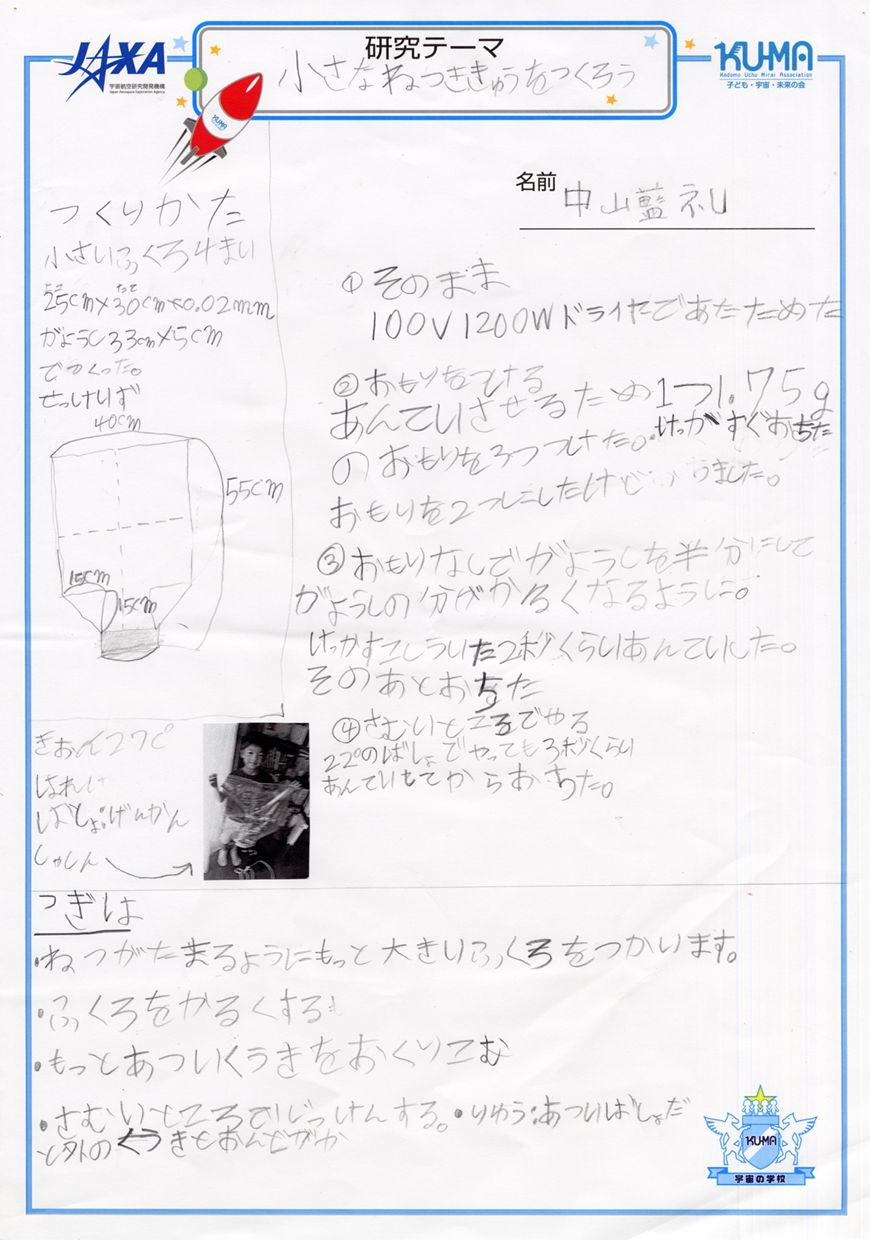 JAXA
宇宙航空研究開発機構
Japan Aerospace Exploration Agency
研究テーマ
小さなねつききゅうをつくろう
KUMA
Kodomo Uchu Mirai Association
子ども・宇宙・未来の会
KUMA
名前 中山藍礼
つくりかた
小さいふくろ4まい
よこ たて
25cm×30cm×0.02mm
がようし33cm×5cm
でつくった。
せっけいず
40cm
55cm
15cm
15cm
① そのまま
100V1200Wドライヤであたためた
②おもりをつける
あんていさせるため1つ1.75g
のおもりを3つつけた。けっかすぐおちた
おもりを2つにしたけど
③おもりなしでがようしを半分にして
がようしの分がかるくなるように。
けっかすこしういた2びょうくらいあんていした。
そのあとおちた
④さむいところでやる
22°のばしょでやっても3びょうくらい
あんていしてからおちた。
きおん27℃
はれ
ばしょ:げんかん
しゃしん
つぎは
・ねつがたまるようにもっと大きいふくろをつかいます。
・ふくろをかるくする
・もっとあついくうきをおくりこむ
・さむいところでじっけんする。・りゆう:あついばしょだ
と外のくうきとおんどがか
KUMA
宇宙の学校